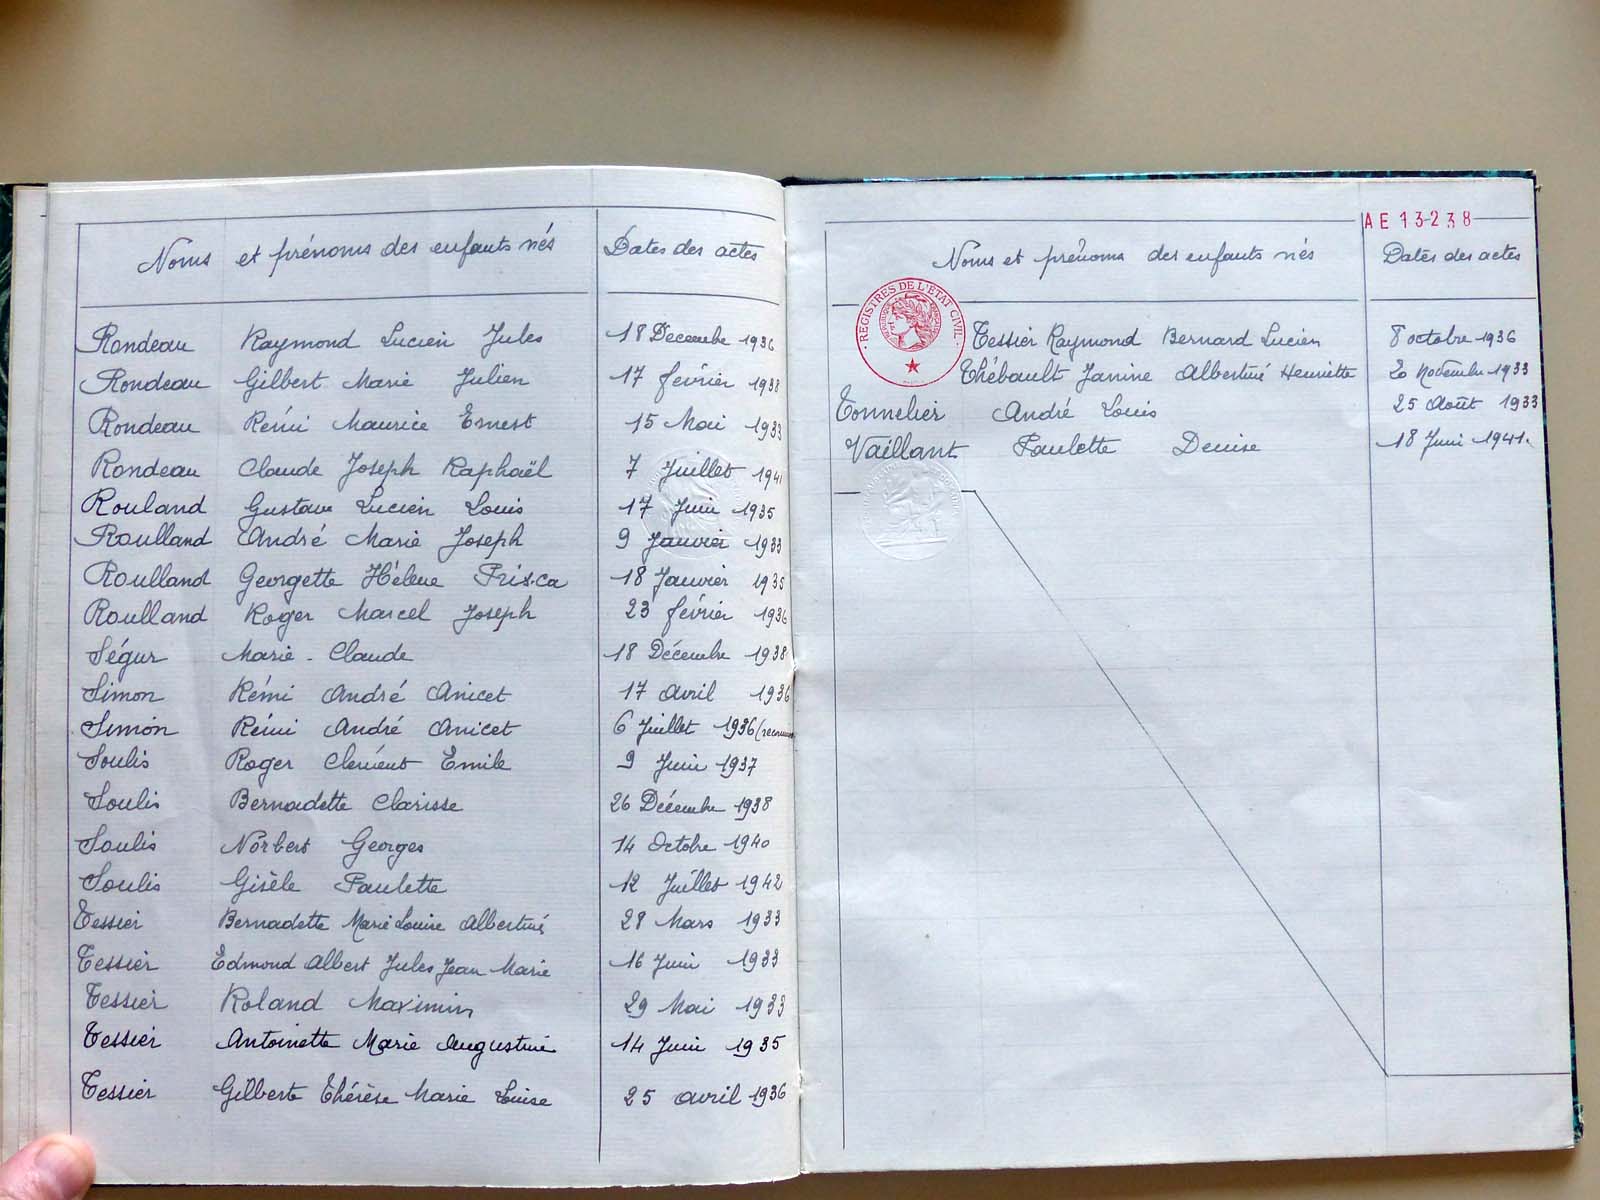 Noms et prénoms des enfants nés Dates des actes
Rondeau Raymond Lucien Jules 18 Décembre 1936
Rondeau Gilbert Marie Julien 17 février 1938
Rondeau Rémi Maurice Ernest 15 Mai 1933
Rondeau Claude Joseph Raphaël 7 Juillet 1941
Rouland Gustave Lucien Louis 17 Juin 1935
Roulland André Marie Joseph 9 Janvier 1933
Roulland Georgette Hélène Prisca 18 Janvier 1935
Roulland Roger Marcel Joseph 23 février 1936
Ségur Marie-Claude 18 Décembre 1938
Simon Rémi André Anicet 17 avril 1936
Simon Rémi André Anicet 6 Juillet 1936
Soulis Roger Clément Emile 9 Juin 1937
Soulis Bernadette Clarisse 26 Décembre 1938
Soulis Norbert Georges 14 Octobre 1940
Soulis Gisèle Paulette 12 Juillet 1942
Tessier Bernadette Marie Louise Albertine 28 Mars 1933
Tessier Edmond Albert Jules Jean Marie 16 Juin 1933
Tessier Roland Maximin 29 Mai 1933
Tessier Antoinette Marie Augustine 14 Juin 1935
Tessier Gilberte Thérèse Marie Louise 25 avril 1936
AE 13-238
Noms et prénoms des enfants nés Dates des actes
REGISTRES DE L'ÉTAT CIVIL
Tessier Raymond Bernard Lucien 8 octobre 1936
Thébault Janine Albertine Henriette 20 Novembre 1933
Tonnelier André Louis 25 Août 1933
Vaillant Paulette Denise 18 Juin 1941.